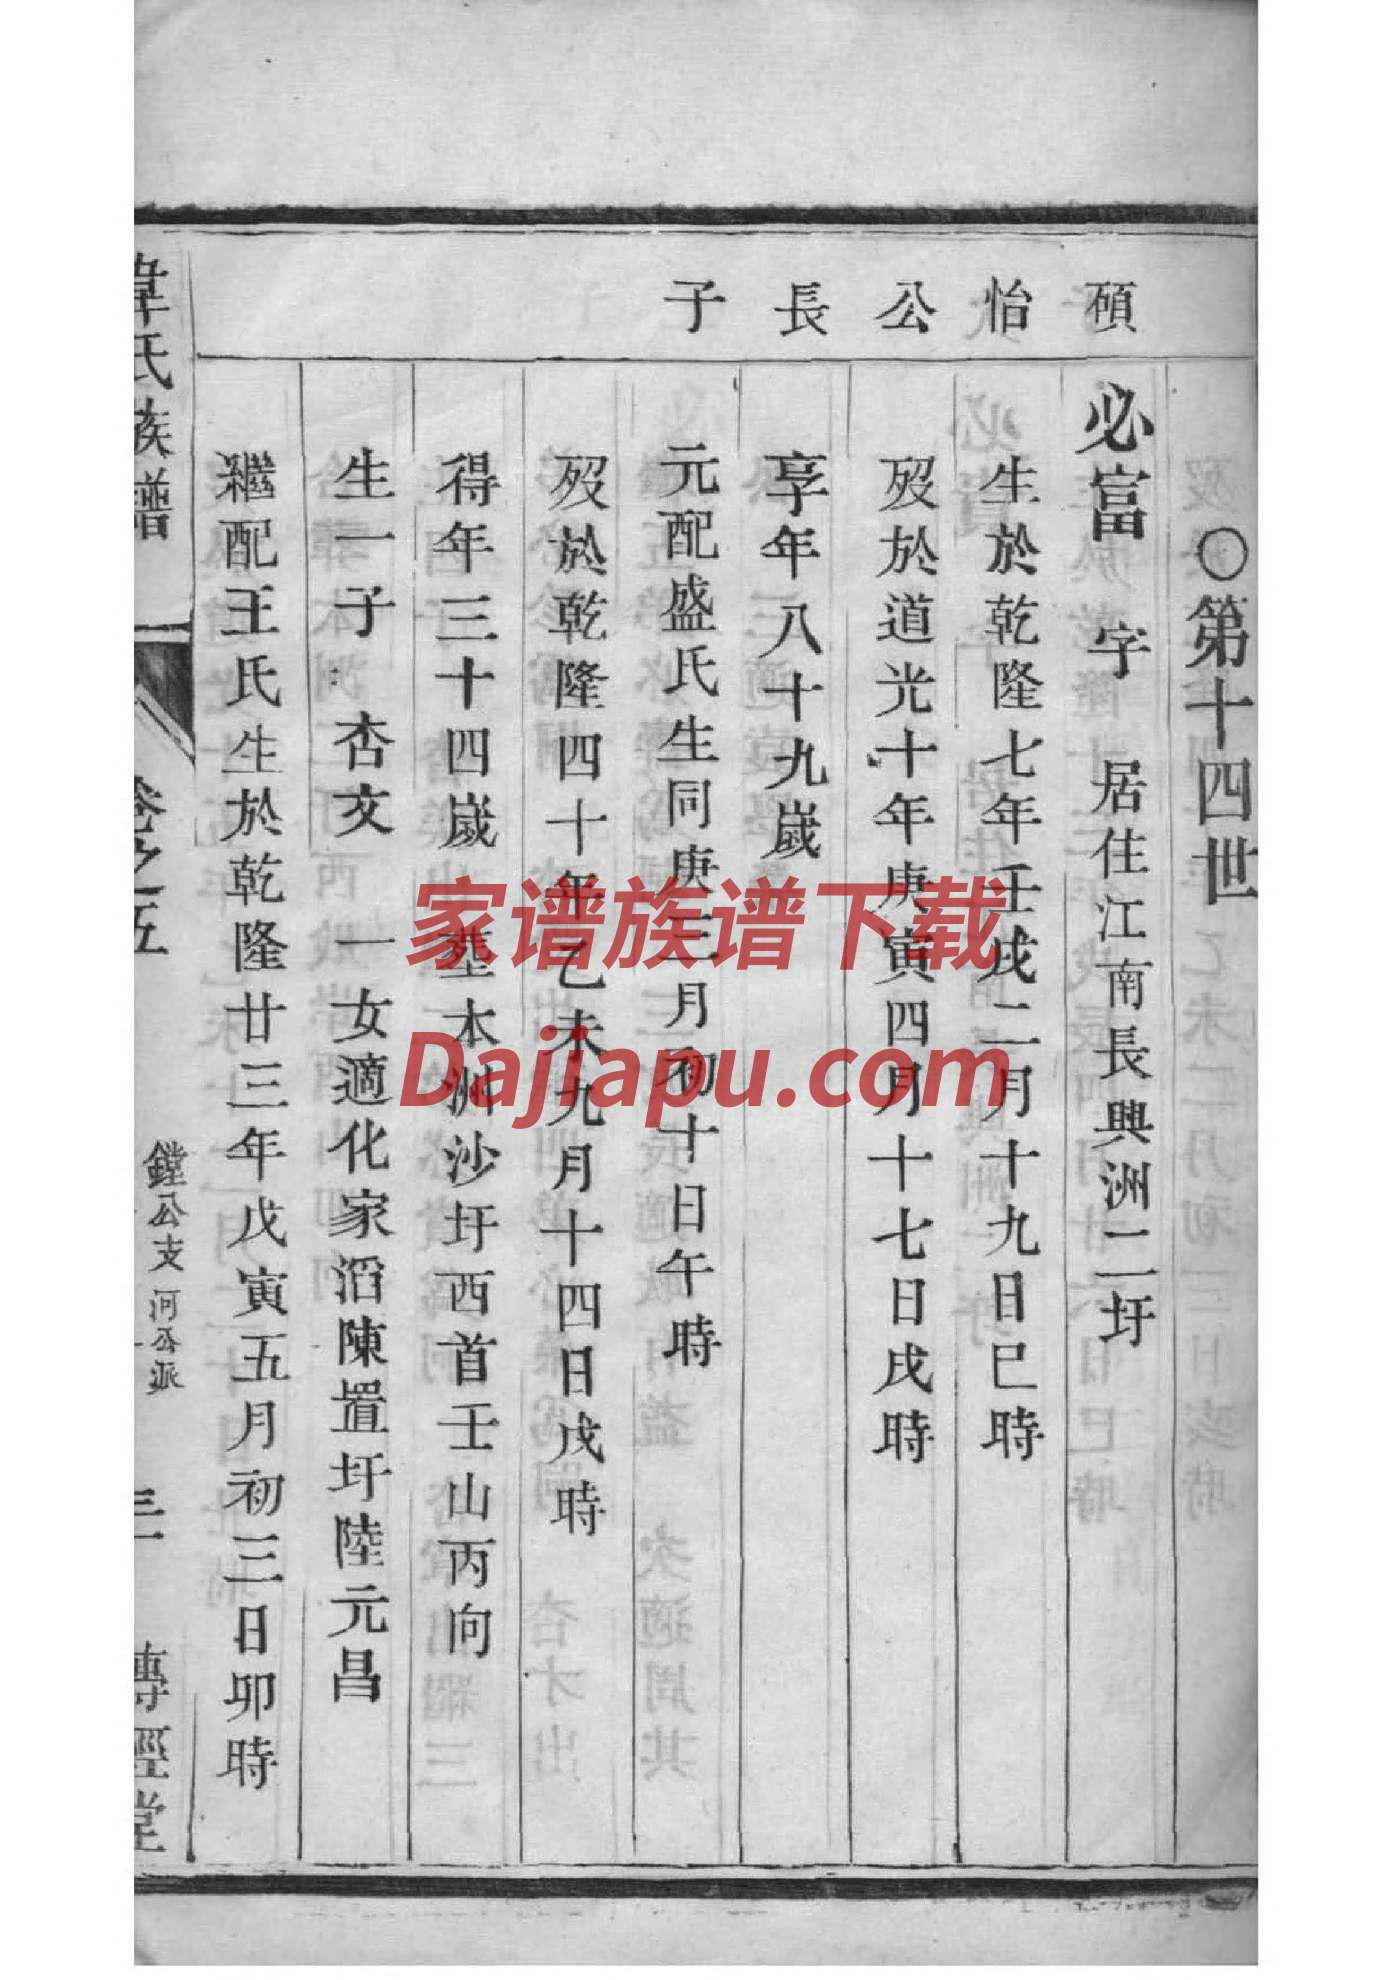 〇第十四世
碩怡公長子
必富　字　居住江南長興洲二圩
生於乾隆七年壬戌二月十九日巳時
歿於道光十年庚寅四月十七日戌時
享年八十九歲
元配盛氏生同庚三月初十日午時
歿於乾隆四十年乙未九月十四日戌時
得年三十四歲　塟本洲沙圩西首壬山丙向
生一子　杏友　一女適化家滔陳置圩陸元昌
繼配王氏生於乾隆廿三年戊寅五月初三日卯時
韋氏族譜　卷之五　鏜公支河公派　三　傳經堂
家谱族谱下载
Dajiapu.com